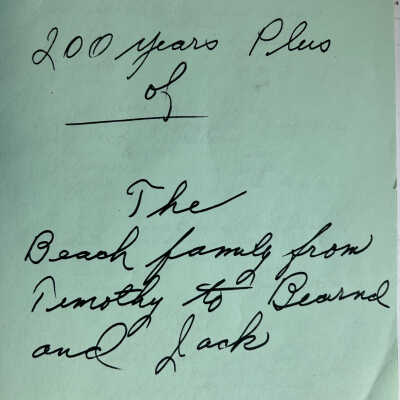 200 years Plus
of
The
Beach family from
Timothy to Bearnd
and Jack